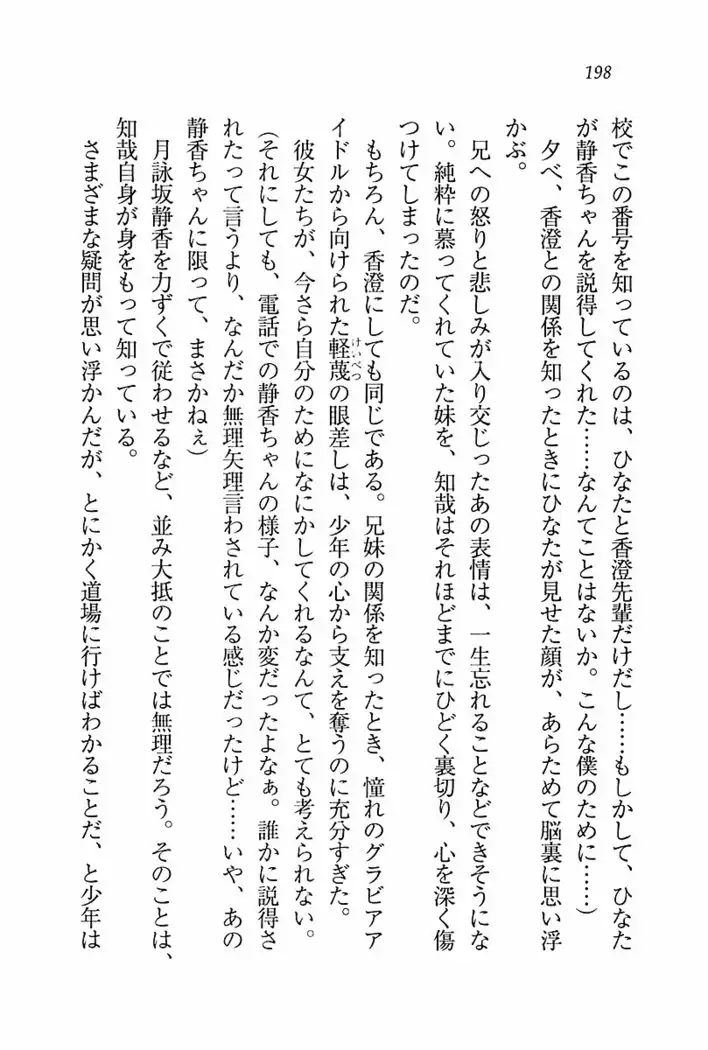 198
校でこの番号を知っているのは、ひなたと香澄先輩だけだし……もしかして、ひなた
が静香ちゃんを説得してくれた……なんてことはないか。こんな僕のために……)
夕べ、香澄との関係を知ったときにひなたが見せた顔が、あらためて脳裏に思い浮
かぶ。
兄への怒りと悲しみが入り交じったあの表情は、一生忘れることなどできそうにな
い。純粋に慕ってくれていた妹を、知哉はそれほどまでにひどく裏切り、心を深く傷
つけてしまったのだ。
もちろん、香澄にしても同じである。兄妹の関係を知ったとき、憧れのグラビアア
イドルから向けられた軽蔑の眼差しは、少年の心から支えを奪うのに充分すぎた。
けいべつ
彼女たちが、今さら自分のためになにかしてくれるなんて、とても考えられない。
(それにしても、電話での静香ちゃんの様子、なんか変だったよなぁ。誰かに説得さ
れたって言うより、なんだか無理矢理言わされている感じだったけど……いや、あの
静香ちゃんに限って、まさかねぇ)
月詠坂静香を力ずくで従わせるなど、並み大抵のことでは無理だろう。そのことは、
知哉自身が身をもって知っている。
さまざまな疑問が思い浮かんだが、とにかく道場に行けばわかることだ、と少年は